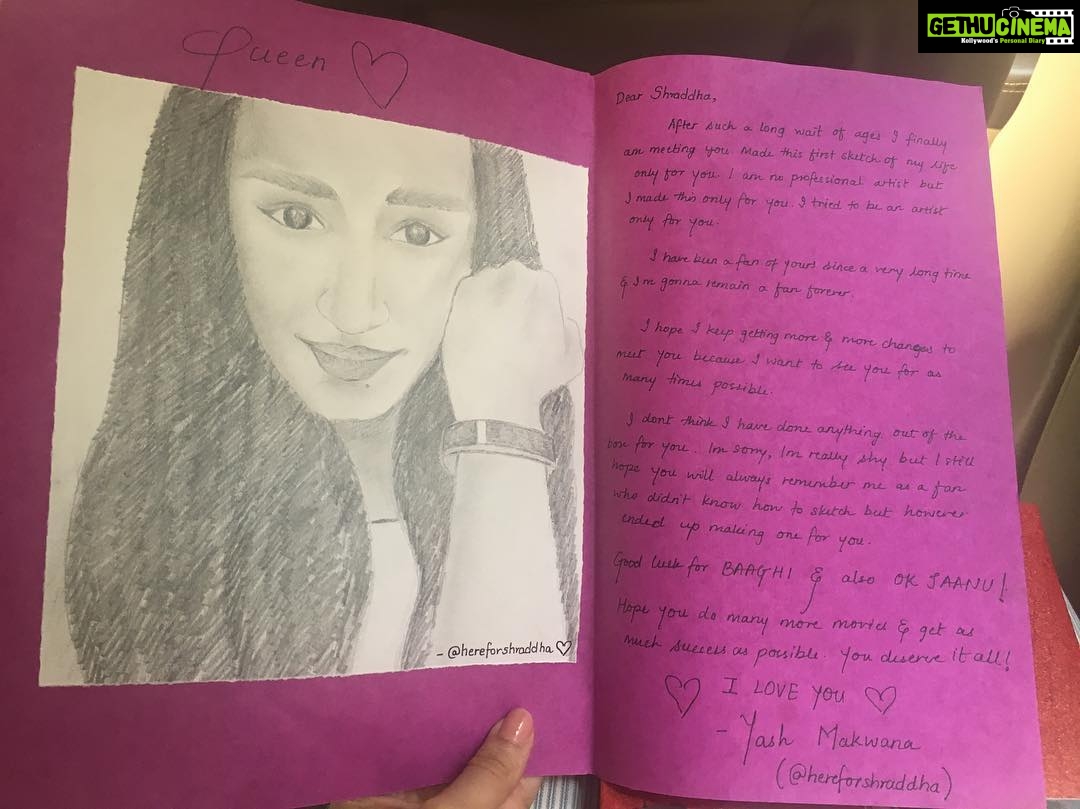 GETHUCINEMA
Kollywood's Personal Diary
Queen
Dear Shraddha,
After such a long wait of ages I finally
am meeting you. Made this first sketch of my life
only for you. I am no professional artist but
I made this only for you. I tried to be an artist
only for you.
I have been a fan of yours since a very long time
& I'm gonna remain a fan forever.
I hope I keep getting more & more changes to
meet you because I want to see you for as
many times possible.
I dont think I have done anything out of the
box for you. Im sorry, Im really shy but I still
hope you will always remember me as a fan
who didn't know how to sketch but however
ended up making one for you.
Good luck for BAAGHI & also OK JAANU!
Hope you do many more movies & get as
much success as possible. You deserve it all!
I LOVE YOU
- Yash Makwana
(@hereforshraddha)
- @hereforshraddha